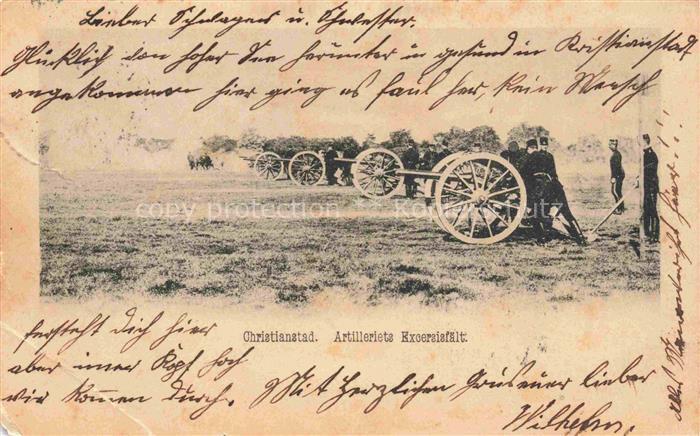 Lieber Schwager u. Schwester.
Glücklich von hoher See herunter in gesund in Kristianstadt
angekommen hier ging es faul her, kein Mensch
copy protection Kopierschutz
Christianstad. Artilleriets Excersisfält.
fersteht dich hier
aber imer Kopf hoch
wir komen durch. Mit Herzlichen Grus euer lieber
Wilhelm.